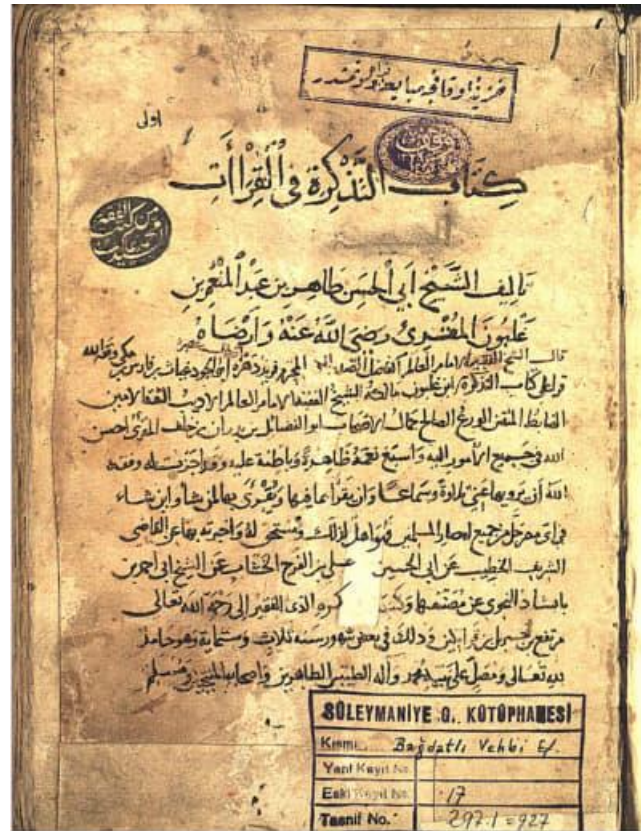 خزينه اوقافجه مبايعه اولنمشدر
اولى
كتاب التذكرة في القراأت
تاليف الشيخ ابي الحسن طاهر بن عبد المنعم بن
غلبون المقرئ رضى الله عنه وارضاه
قال الشيخ الفقيه الامام العالم الفاضل فريد دهره ابو الجود غياث بن فارس بن مكي وفقه الله
قرا على كتاب التذكرة لابن غلبون الشيخ الفقيه الامام العالم الاديب الثقة الامين
الضابط المتقن الورع الصالح جمال ابو الفضائل بن خلف المقرئ احسن
الله في جميع الامور اليه واسبغ نعمه ظاهرة وباطنة عليه وقد اجزت له وفقه
الله أن يرويها عني تلاوة وسماعا وان يقرأ بما فيها ويقرئ بها لمن شاء واين شاء
في اى مصر حل من جميع امصار المسلمين فهو اهل لذلك ومستحق له واخبرته بها عن القاضي
الشريف الخطيب عن ابي الحسين على بن الفرج الخشاب عن الشيخ ابي احمد بن
باسناد عن مصنفها الفقير الى رحمة الله تعالى
وذلك في بعض شهور سنه ثلاث وستماية وهو حامد
لله تعالى ومصل على نبيه محمد وآله الطيبين الطاهرين واصحابه المنتجبين ومسلم
SÜLEYMANİYE G. KÜTÜPHANESİ
Kısmı Bağdatlı Vehbi Ef.
Yeni Kayıt No.
Eski Kayıt No. 17
Tasnif No. 297.1=927